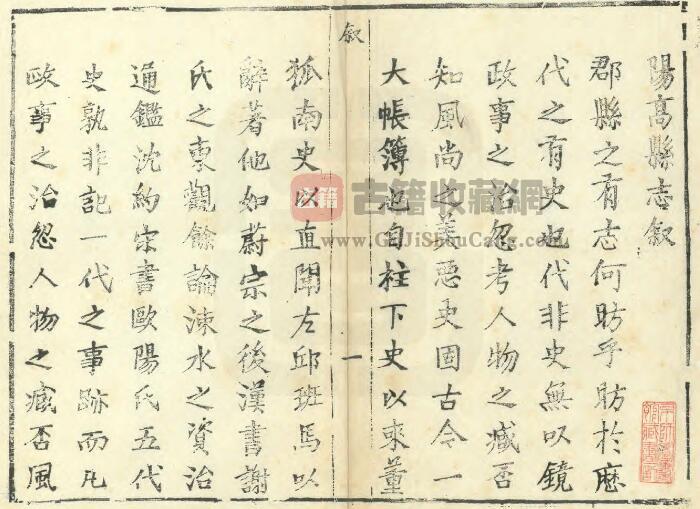 陽高縣志叙
郡縣之有志何昉乎昉於歴
代之有史也代非史無以鏡
政事之治忽考人物之臧否
知風尚之美惡史固古今一
大帳簿也自柱下史以來董
叙
一
狐南史以直聞左邱班馬以
辭著他如蔚宗之後漢書謝
氏之東觀餘論涑水之資治
通鑑沈約宋書歐陽氏五代
史孰非記一代之事跡而凡
政事之治忽人物之臧否風
古籍
古籍收藏網
www.GuJiShouCang.com